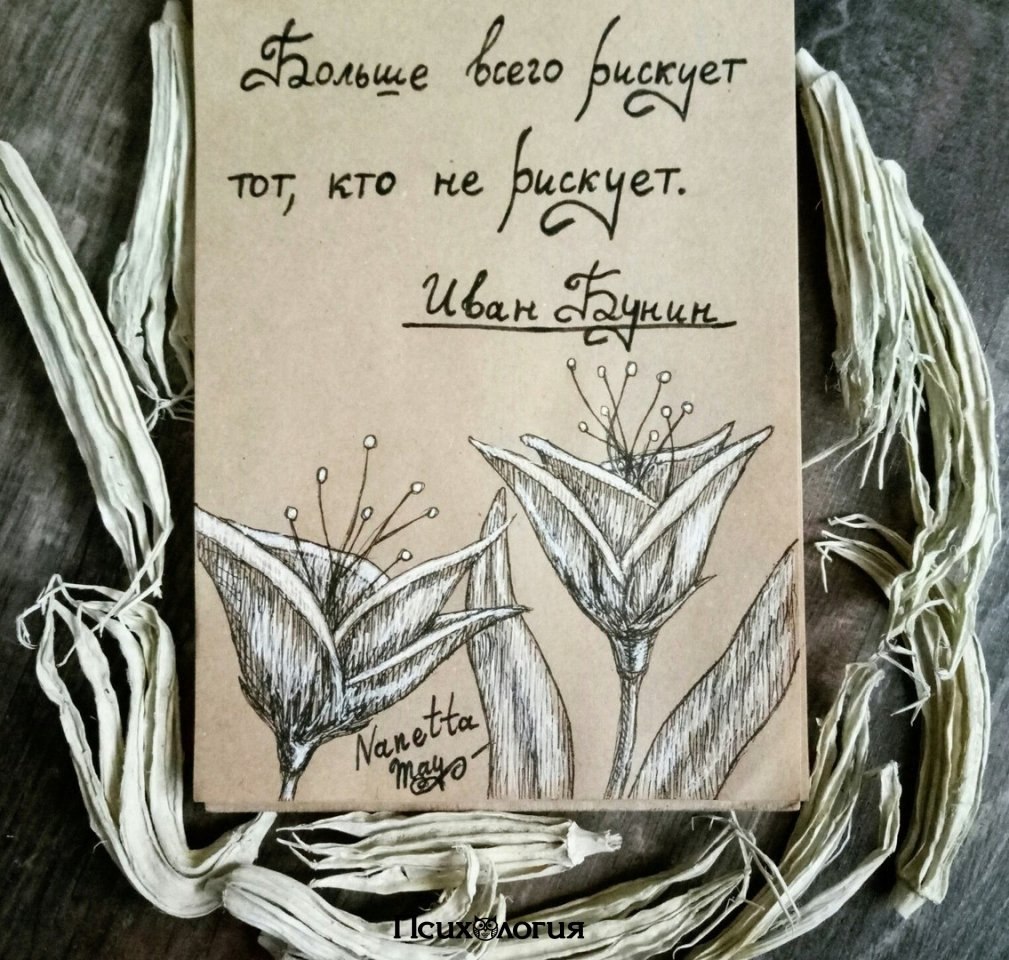 Больше всего рискует
тот, кто не рискует.
Иван Бунин
Nanetta
may
Психология